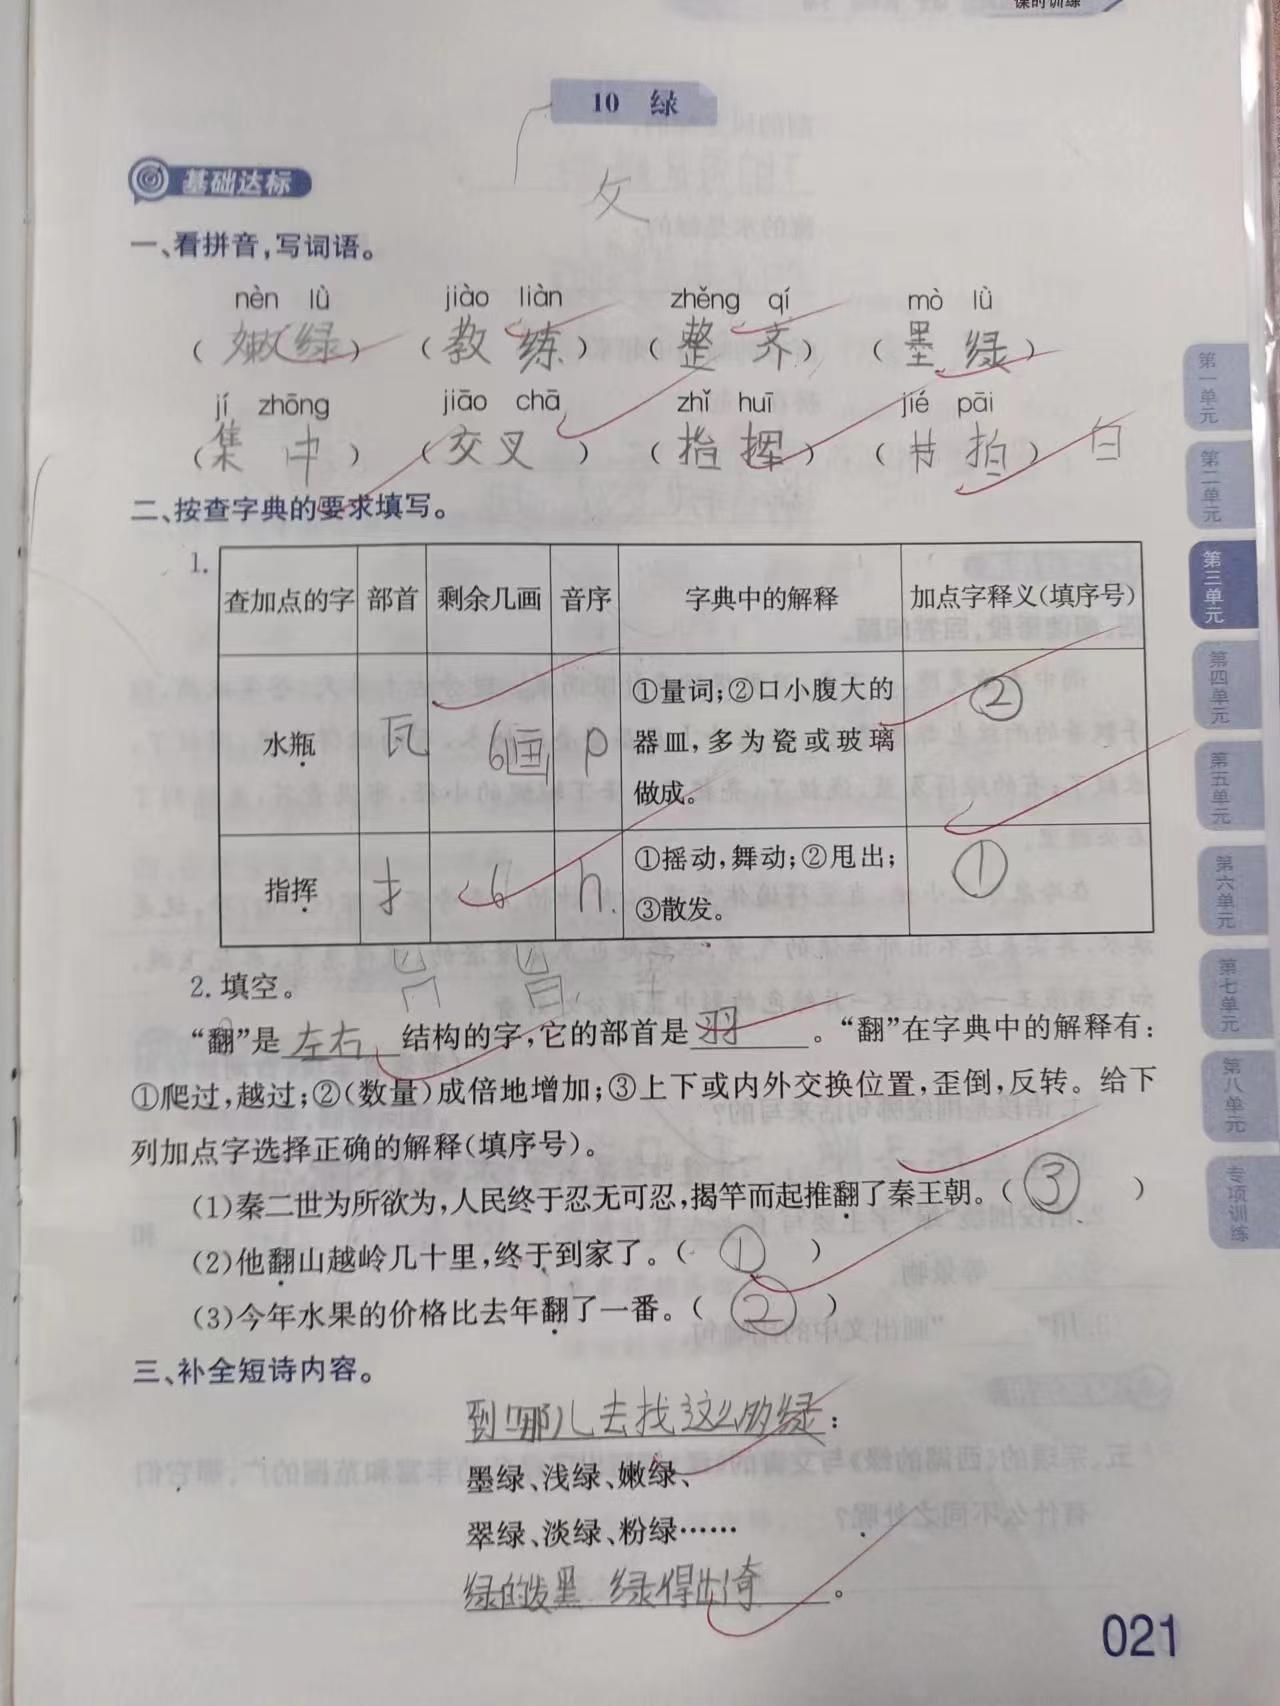 课时训练
10 绿
攵
基础达标
一、看拼音,写词语。
nèn lǜ jiào liàn zhěng qí mò lǜ
(嫩绿) (教练) (整齐) (墨绿)
jí zhōng jiāo chā zhǐ huī jié pāi
(集中) (交叉) (指挥) (节拍) 白
二、按查字典的要求填写。
1.
查加点的字 部首 剩余几画 音序 字典中的解释 加点字释义(填序号)
水瓶 瓦 6画 p ①量词;②口小腹大的器皿,多为瓷或玻璃做成。 ②
指挥 扌 6 h ①摇动,舞动;②甩出;③散发。 ①
2. 填空。
“翻”是 左右 结构的字,它的部首是 羽 。“翻”在字典中的解释有:
①爬过,越过;②(数量)成倍地增加;③上下或内外交换位置,歪倒,反转。给下
列加点字选择正确的解释(填序号)。
(1)秦二世为所欲为,人民终于忍无可忍,揭竿而起推翻了秦王朝。( ③ )
(2)他翻山越岭几十里,终于到家了。( ① )
(3)今年水果的价格比去年翻了一番。( ② )
三、补全短诗内容。
到哪儿去找这么多的绿:
墨绿、浅绿、嫩绿、
翠绿、淡绿、粉绿……
绿的发黑 绿得出奇。
第一单元
第二单元
第三单元
第四单元
第五单元
第六单元
第七单元
第八单元
专项训练
021